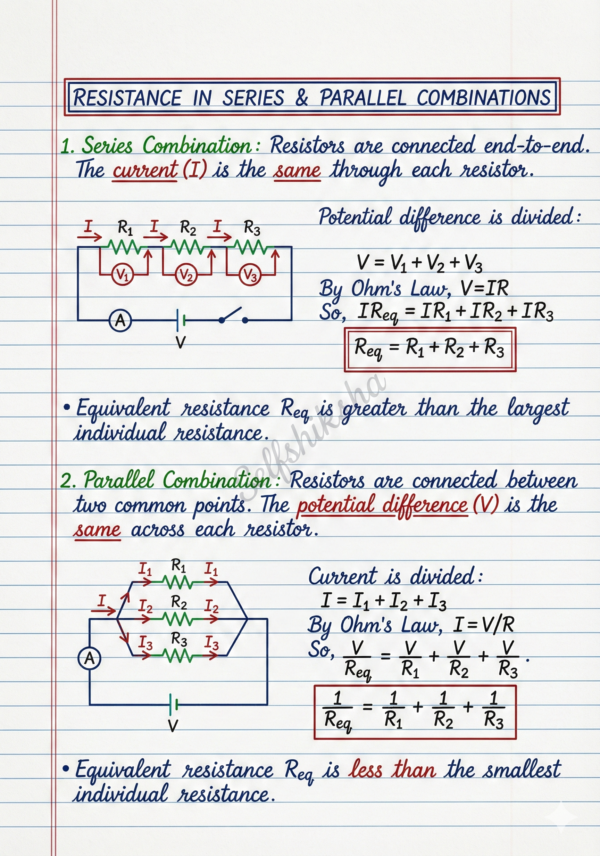 RESISTANCE IN SERIES & PARALLEL COMBINATIONS
1. Series Combination: Resistors are connected end-to-end.
The current (I) is the same through each resistor.
I R₁ I R₂ I R₃
V₁ V₂ V₃
A
V
Potential difference is divided:
V = V₁ + V₂ + V₃
By Ohm's Law, V=IR
So, IReq = IR₁ + IR₂ + IR₃
Req = R₁ + R₂ + R₃
• Equivalent resistance Req is greater than the largest
individual resistance.
Selfshiksha
2. Parallel Combination: Resistors are connected between
two common points. The potential difference (V) is the
same across each resistor.
I₁ R₁ I₁
I I₂ R₂ I₂
I₃ R₃ I₃
A
V
Current is divided:
I = I₁ + I₂ + I₃
By Ohm's Law, I = V/R
So, V/Req = V/R₁ + V/R₂ + V/R₃ .
1/Req = 1/R₁ + 1/R₂ + 1/R₃
• Equivalent resistance Req is less than the smallest
individual resistance.